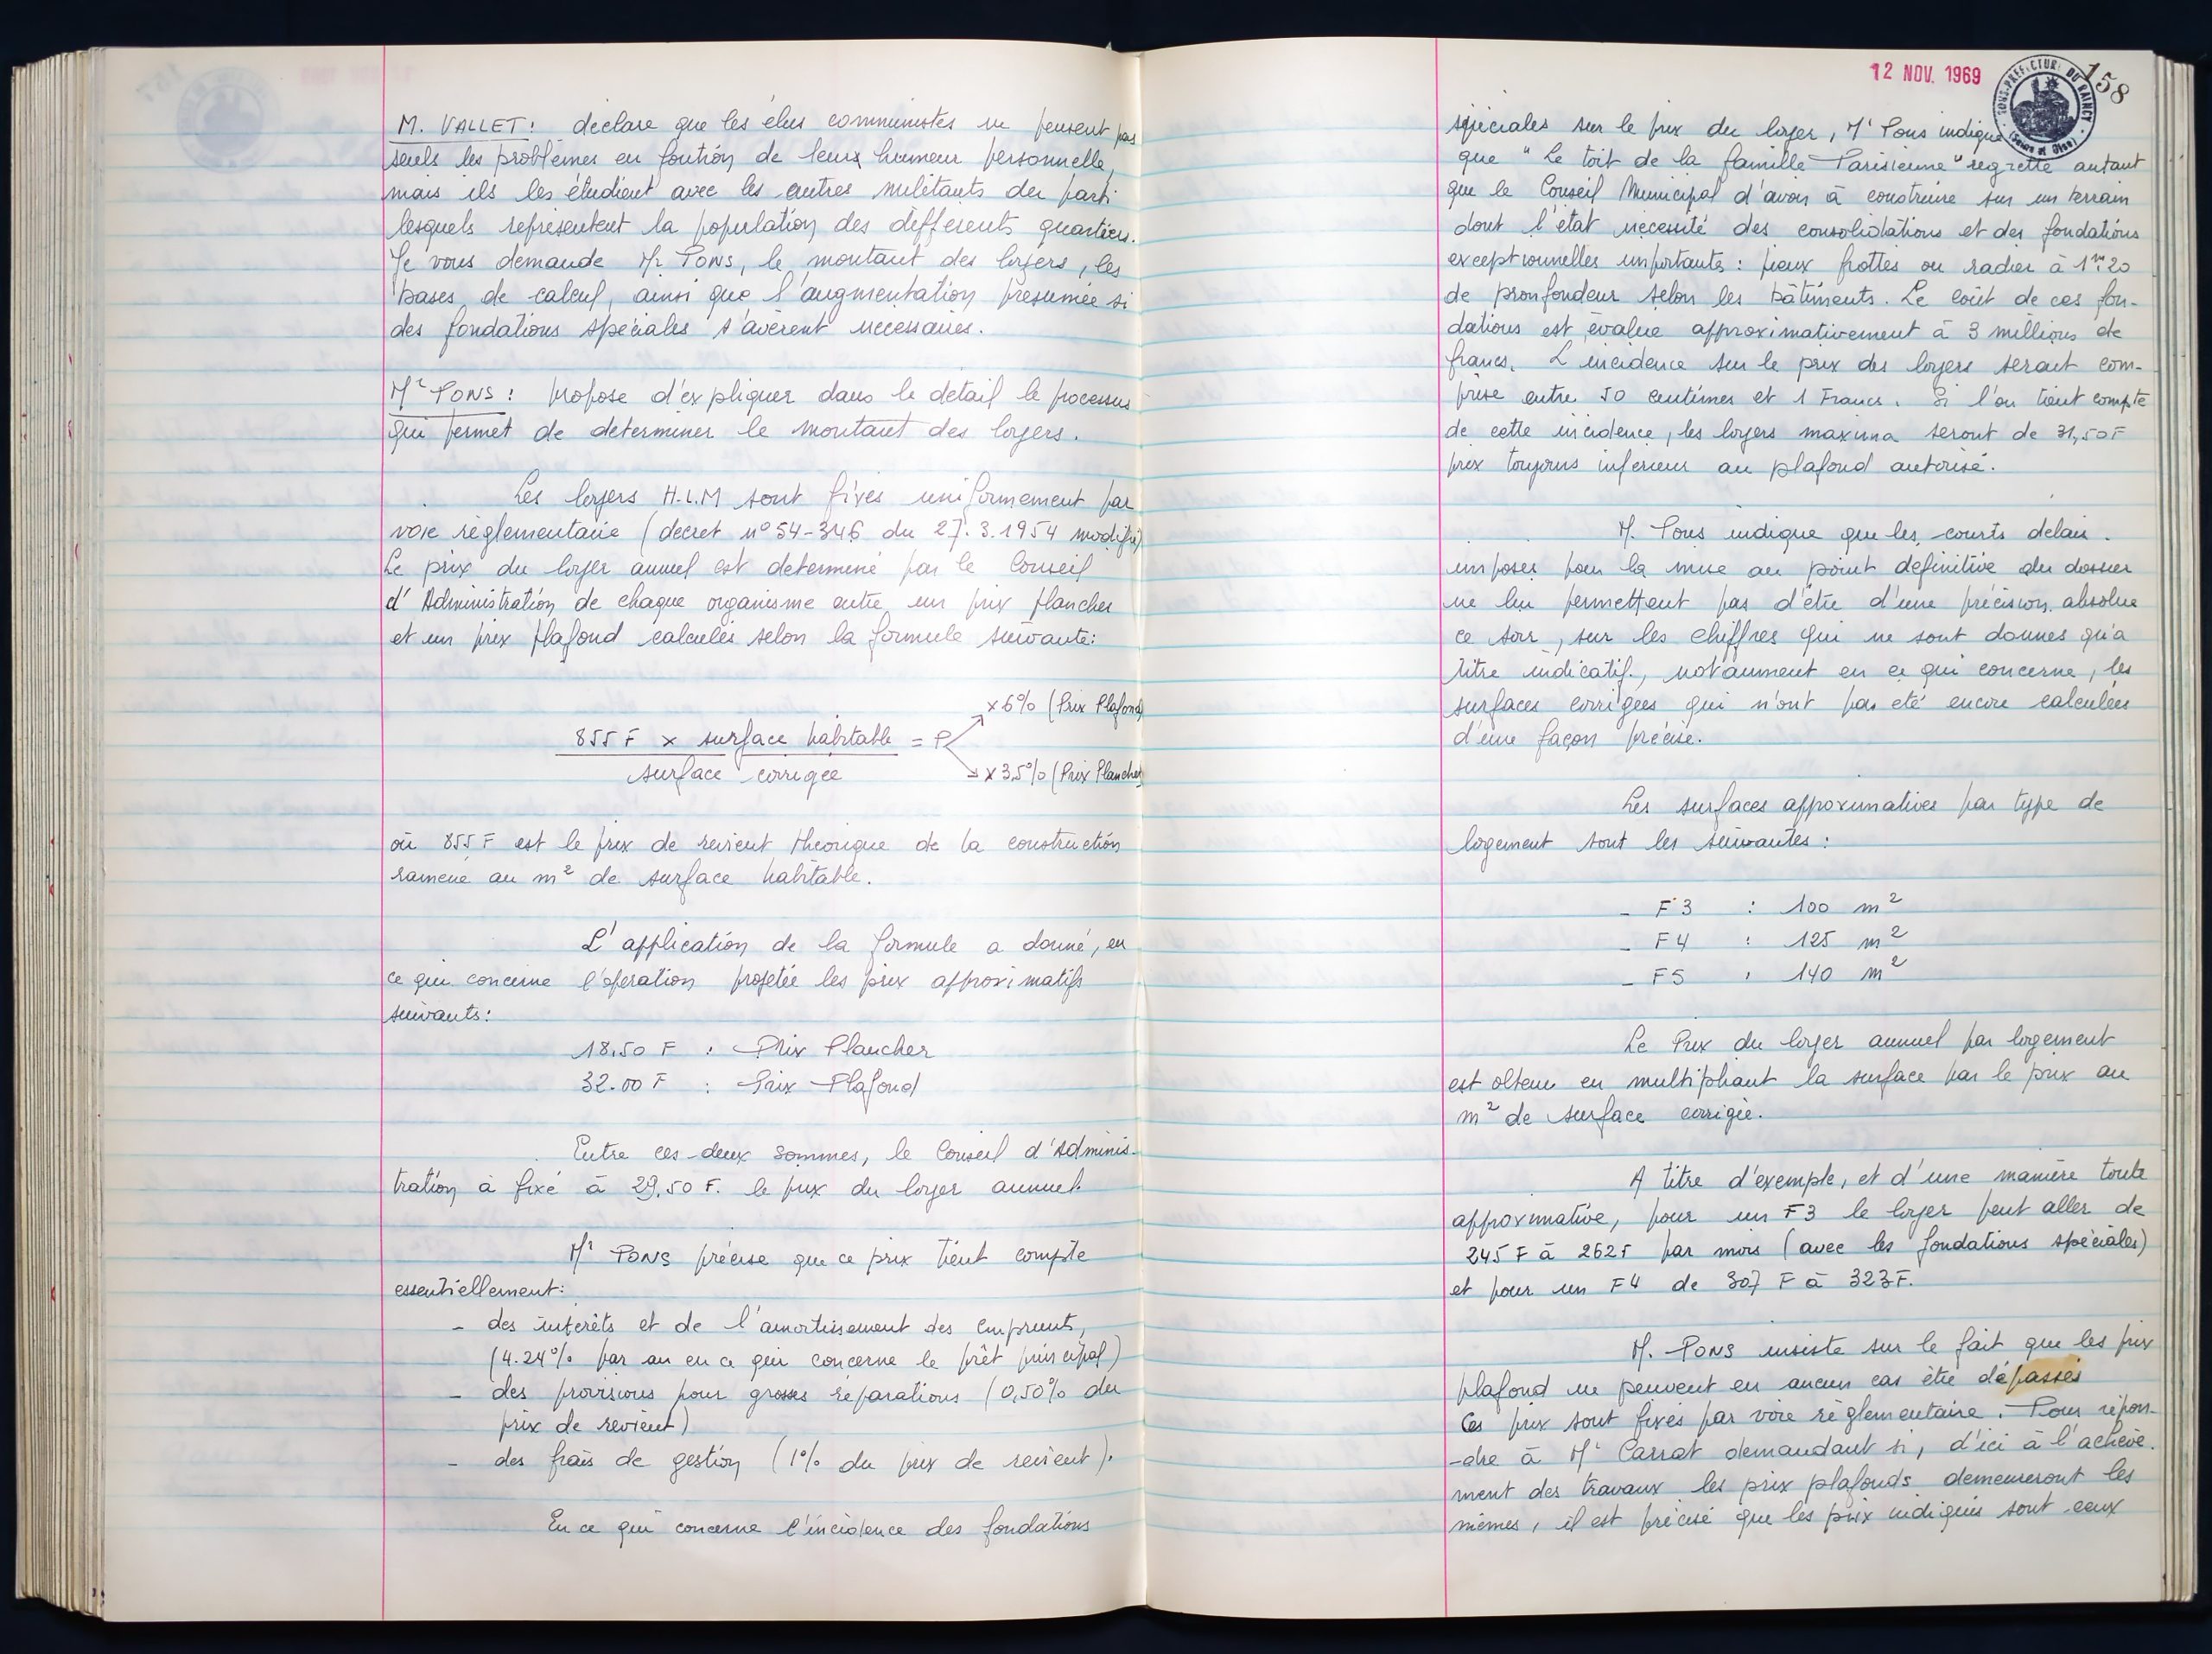 M. VALLET : déclare que les élus communistes ne pensent pas
seuls les problèmes en fontión de leurs humeur personnelle,
mais ils les étudient avec les autres militants du parti
lesquels représentent la population des différents quartiers.
Je vous demande Mr PONS, le montant des loyers, les
bases de calcul, ainsi que l'augmentation présumée si
des fondations spéciales s'avèrent nécessaires.
Mr PONS : propose d'expliquer dans le détail le processus
qui permet de déterminer le montant des loyers.
Les loyers H.L.M sont fixés uniformement par
voie règlementaire (décret n° 54-346 du 27.3.1954 modifié)
Le prix du loyer annuel est determiné par le Conseil
d'Administration de chaque organisme entre un prix plancher
et un prix plafond calculés selon la formule suivante:
x 6% (Prix Plafond)
855 F x surface habitable = P
surface corrigée
x 3,5% (Prix Plancher)
où 855 F est le prix de revient théorique de la construction
ramené au m² de surface habitable.
L'application de la formule a donné, en
ce qui concerne l'opération projetée les prix approximatifs
suivants:
18.50 F : Prix Plancher
32.00 F : Prix Plafond
Entre ces deux sommes, le Conseil d'Adminis-
tration à fixé à 29,50 F. le prix du loyer annuel.
Mr PONS précise que ce prix tient compte
essentiellement:
- des intérêts et de l'amortissement des emprunts,
(4.24% par an en ce qui concerne le prêt principal)
- des provisions pour grosses réparations (0,50% du
prix de revient)
- des frais de gestion (1% du prix de revient).
En ce qui concerne l'incidence des fondations
12 NOV. 1969
SOUS-PRÉFECTURE DU RAINCY
(Seine et Oise)
158
spéciales sur le prix du loyer, Mr Pons indique
que "Le toit de la famille Parisienne" regrette autant
que le Conseil Municipal d'avoir à construire sur un terrain
dont l'état nécessité des consolidations et des fondations
exceptionnelles importantes : pieux frottés ou radier à 1m20
de pronfondeur selon les bâtiments. Le coût de ces fon-
dations est évalué approximativement à 3 millions de
francs. L'incidence sur le prix des loyers serait com-
prise entre 50 centimes et 1 Francs. Si l'on tient compte
de cette incidence, les loyers maxima seront de 31,50 F
prix toujours inférieur au plafond autorisé.
M. Pons indique que les courts délais
imposés pour la mise au point définitive du dossier
ne lui permettent pas d'être d'une précision absolue
ce soir, sur les chiffres qui ne sont donnés qu'à
titre indicatif, notamment en ce qui concerne, les
surfaces corrigées qui n'ont pas été encore calculées
d'une façon précise.
Les surfaces approximatives par type de
logement sont les suivantes :
- F3 : 100 m²
- F4 : 125 m²
- F5 : 140 m²
Le Prix du loyer annuel par logement
est obtenu en multipliant la surface par le prix au
m² de surface corrigée.
A titre d'exemple, et d'une manière toute
approximative, pour un F3 le loyer peut aller de
245 F à 262 F par mois (avec les fondations spéciales)
et pour un F4 de 307 F à 323 F.
M. PONS insiste sur le fait que les prix
plafond ne peuvent en aucun cas être dépassés
Ces prix sont fixés par voie règlementaire. Pour répon-
-dre à Mr Carrat demandant si, d'ici à l'achève-
ment des travaux les prix plafonds demeureront les
mêmes, il est précisé que les prix indiqués sont ceux